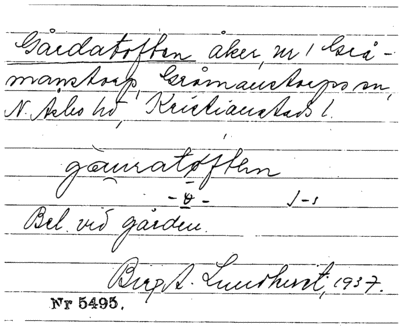 Gårdatoften åker, nr 1 Grå-
manstorp, Gråmanstorps sn,
N. Åsbo hd, Kristianstads l.
gåuratɵften
- ɵ - J-s
Bel. vid gården.
Birg A. Lundkvist, 1937.
Nr 5495.